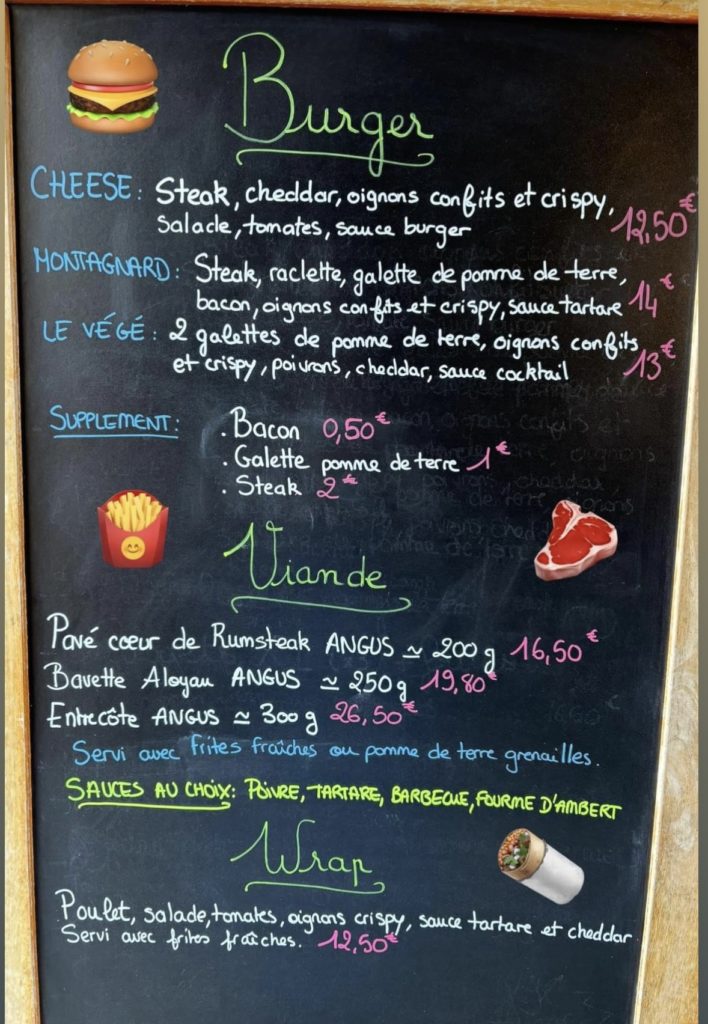 Burger
CHEESE: Steak, cheddar, oignons confits et crispy,
salade, tomates, sauce burger 12,50€
MONTAGNARD: Steak, raclette, galette de pomme de terre,
bacon, oignons confits et crispy, sauce tartare 14€
LE VÉGÉ: 2 galettes de pomme de terre, oignons confits
et crispy, poivrons, cheddar, sauce cocktail 13€
SUPPLEMENT: . Bacon 0,50€
. Galette pomme de terre 1€
. Steak 2€
Viande
Pavé cœur de Rumsteak ANGUS ≃ 200 g 16,50€
Bavette Aloyau ANGUS ≃ 250g 19,80€
Entrecôte ANGUS ≃ 300 g 26,50€
Servi avec frites fraîches ou pomme de terre grenailles.
SAUCES AU CHOIX: POIVRE, TARTARE, BARBECUE, FOURME D'AMBERT
Wrap
Poulet, salade, tomates, oignons crispy, sauce tartare et cheddar
Servi avec frites fraîches. 12,50€